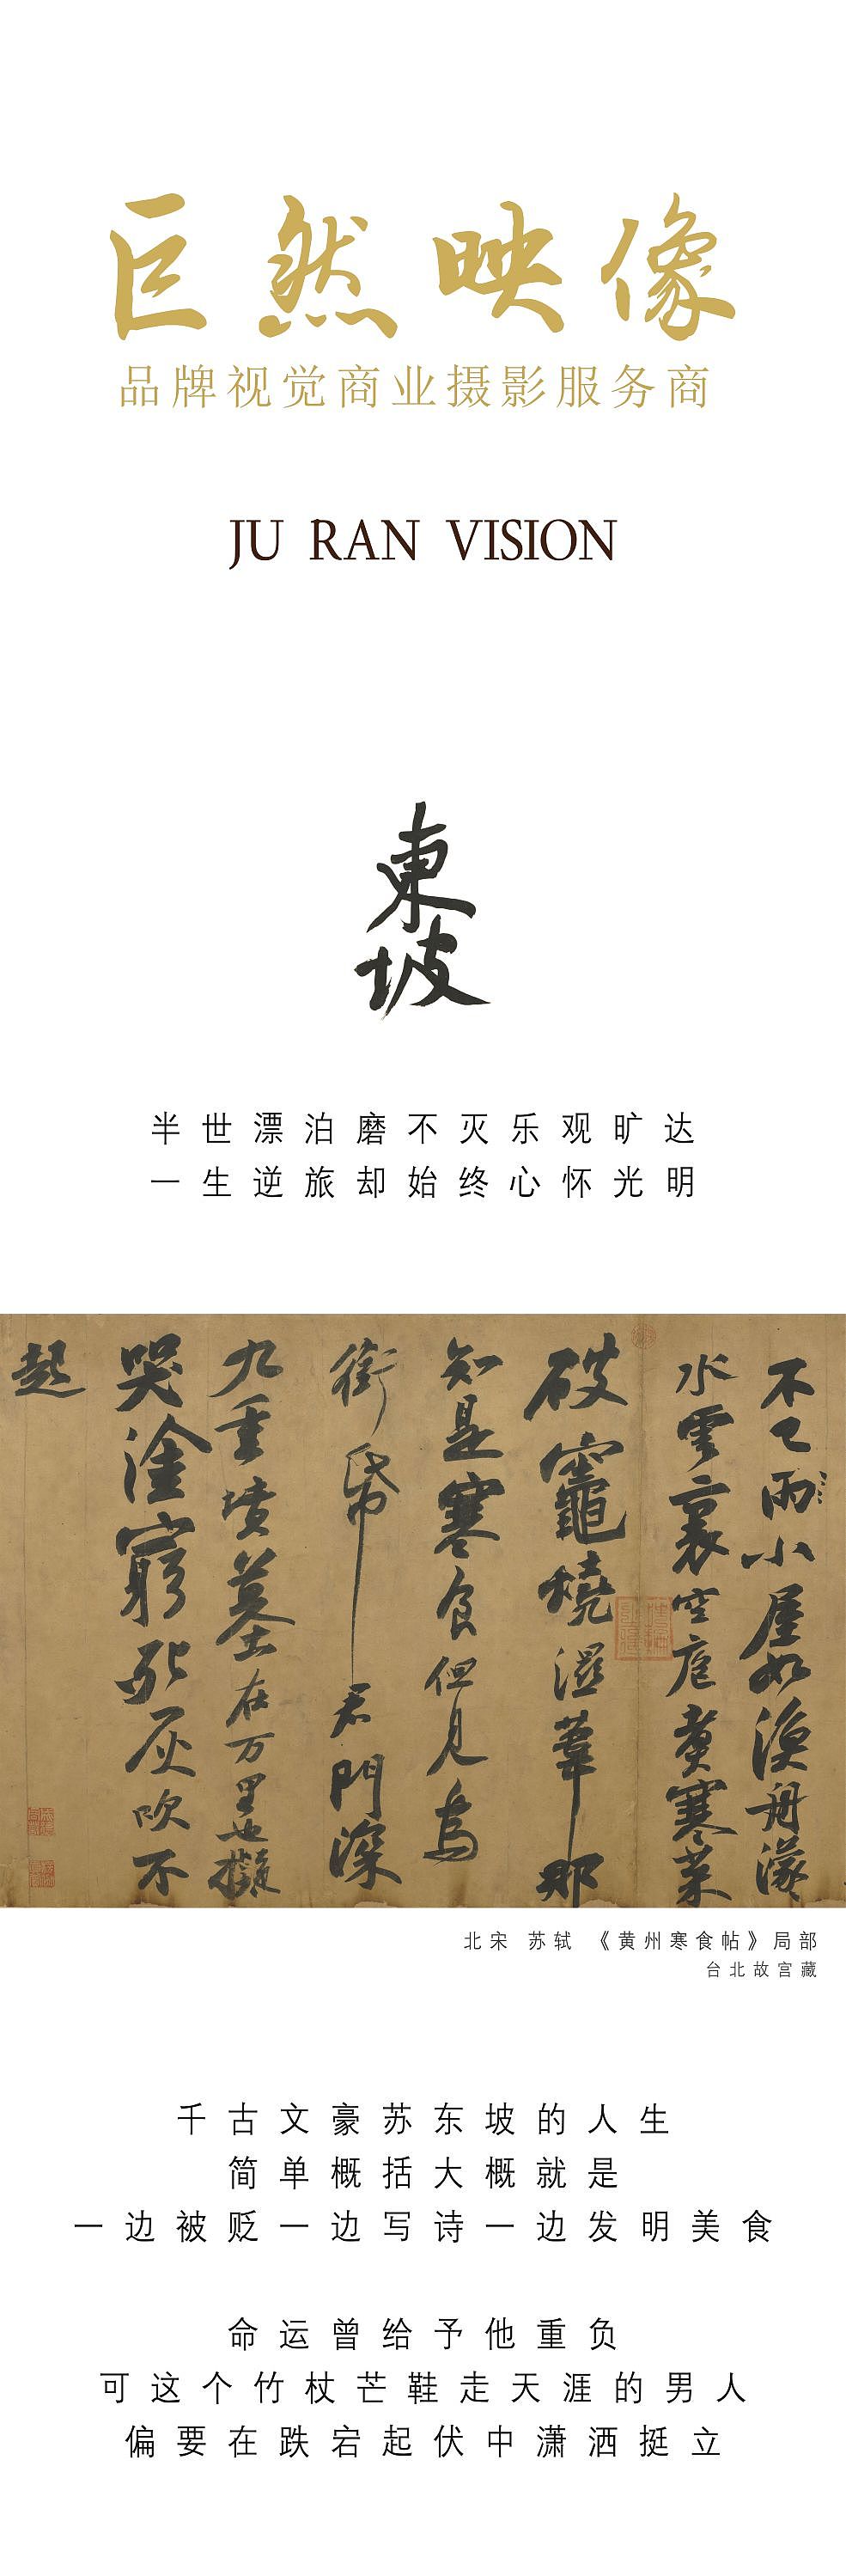 巨然映像
品牌视觉商业摄影服务商
JU RAN VISION
東
坡
半世漂泊磨不灭乐观旷达
一生逆旅却始终心怀光明
不已雨小屋如漁舟濛
水雲裏空庖煮寒菜
破竈燒濕葦那
知是寒食但見烏
銜帋君門深
九重墳墓在万里也擬
哭塗窮死灰吹不
起
北宋 苏轼 《黄州寒食帖》局部
台北故宫藏
千古文豪苏东坡的人生
简单概括大概就是
一边被贬一边写诗一边发明美食
命运曾给予他重负
可这个竹杖芒鞋走天涯的男人
偏要在跌宕起伏中潇洒挺立